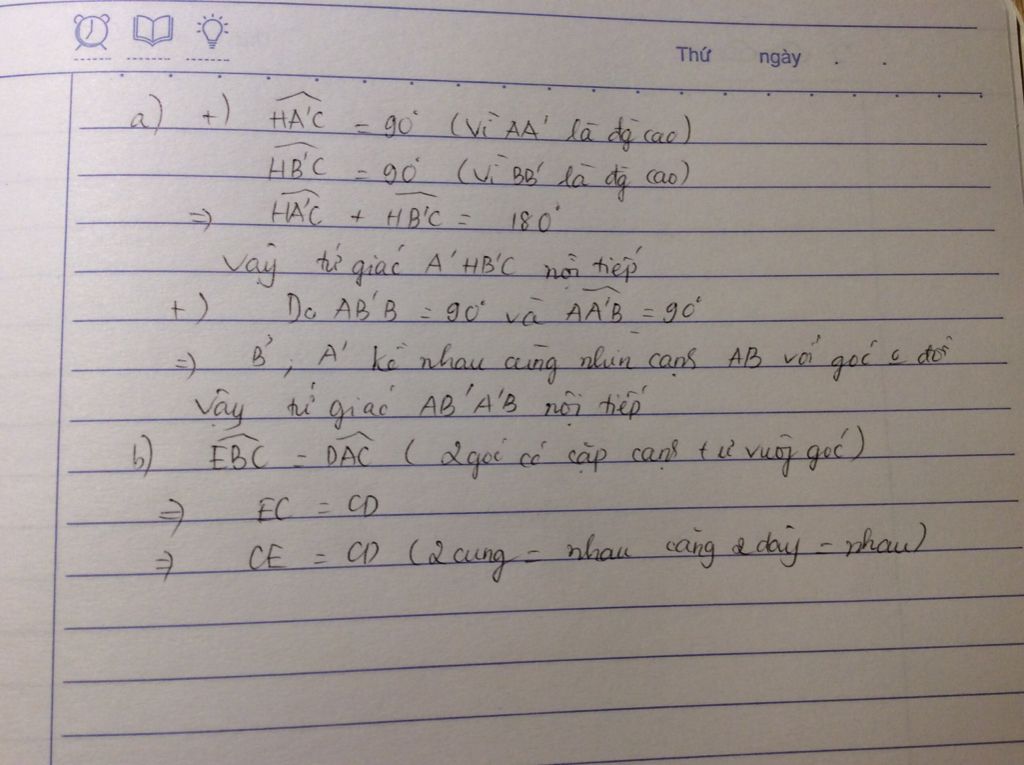 Thứ ngày . .
a) +) HA'C = 90° (Vì AA' là đg cao)
HB'C = 90° (Vì BB' là đg cao)
=> HA'C + HB'C = 180°
Vậy tứ giác A'HB'C nội tiếp
+) Do AB'B = 90° và AA'B = 90°
=> B', A' kề nhau cùng nhìn cạnh AB với góc đổi
Vậy tứ giác AB'A'B nội tiếp
b) EBC = DAC ( 2 góc có cặp cạnh tư vuôg góc)
=> EC = CD
=> CE = CD (2 cung = nhau căng 2 dây = nhau)